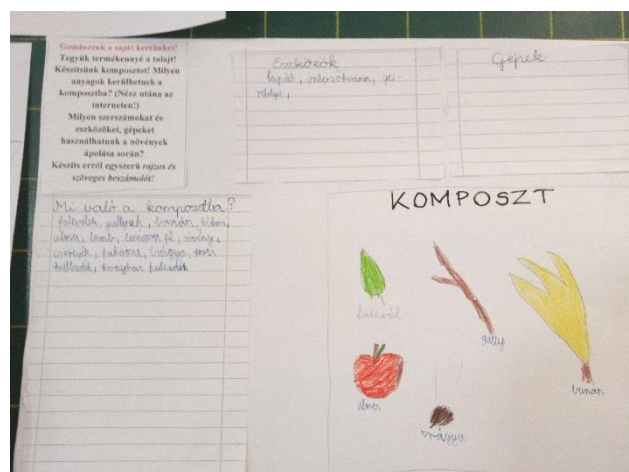 Gondozzuk a saját kertünket!
Tegyük termékennyé a talajt!
Készítsünk komposztot! Milyen
anyagok kerülhetnek a
komposztba? (Nézz utána az
interneten!)
Milyen szerszámokat és
eszközöket, gépeket
használhatunk a növények
ápolása során?
Készíts erről egyszerű rajzos és
szöveges beszámolót!
Eszközök
lapát,
Gépek
Mi való a komposztba?
falevelek, gallyak, banán,
alma, lomb, fű,
fahamu, trágya,
hulladék, konyhai hulladék
KOMPOSZT
falevél
gally
banán
alma
trágya